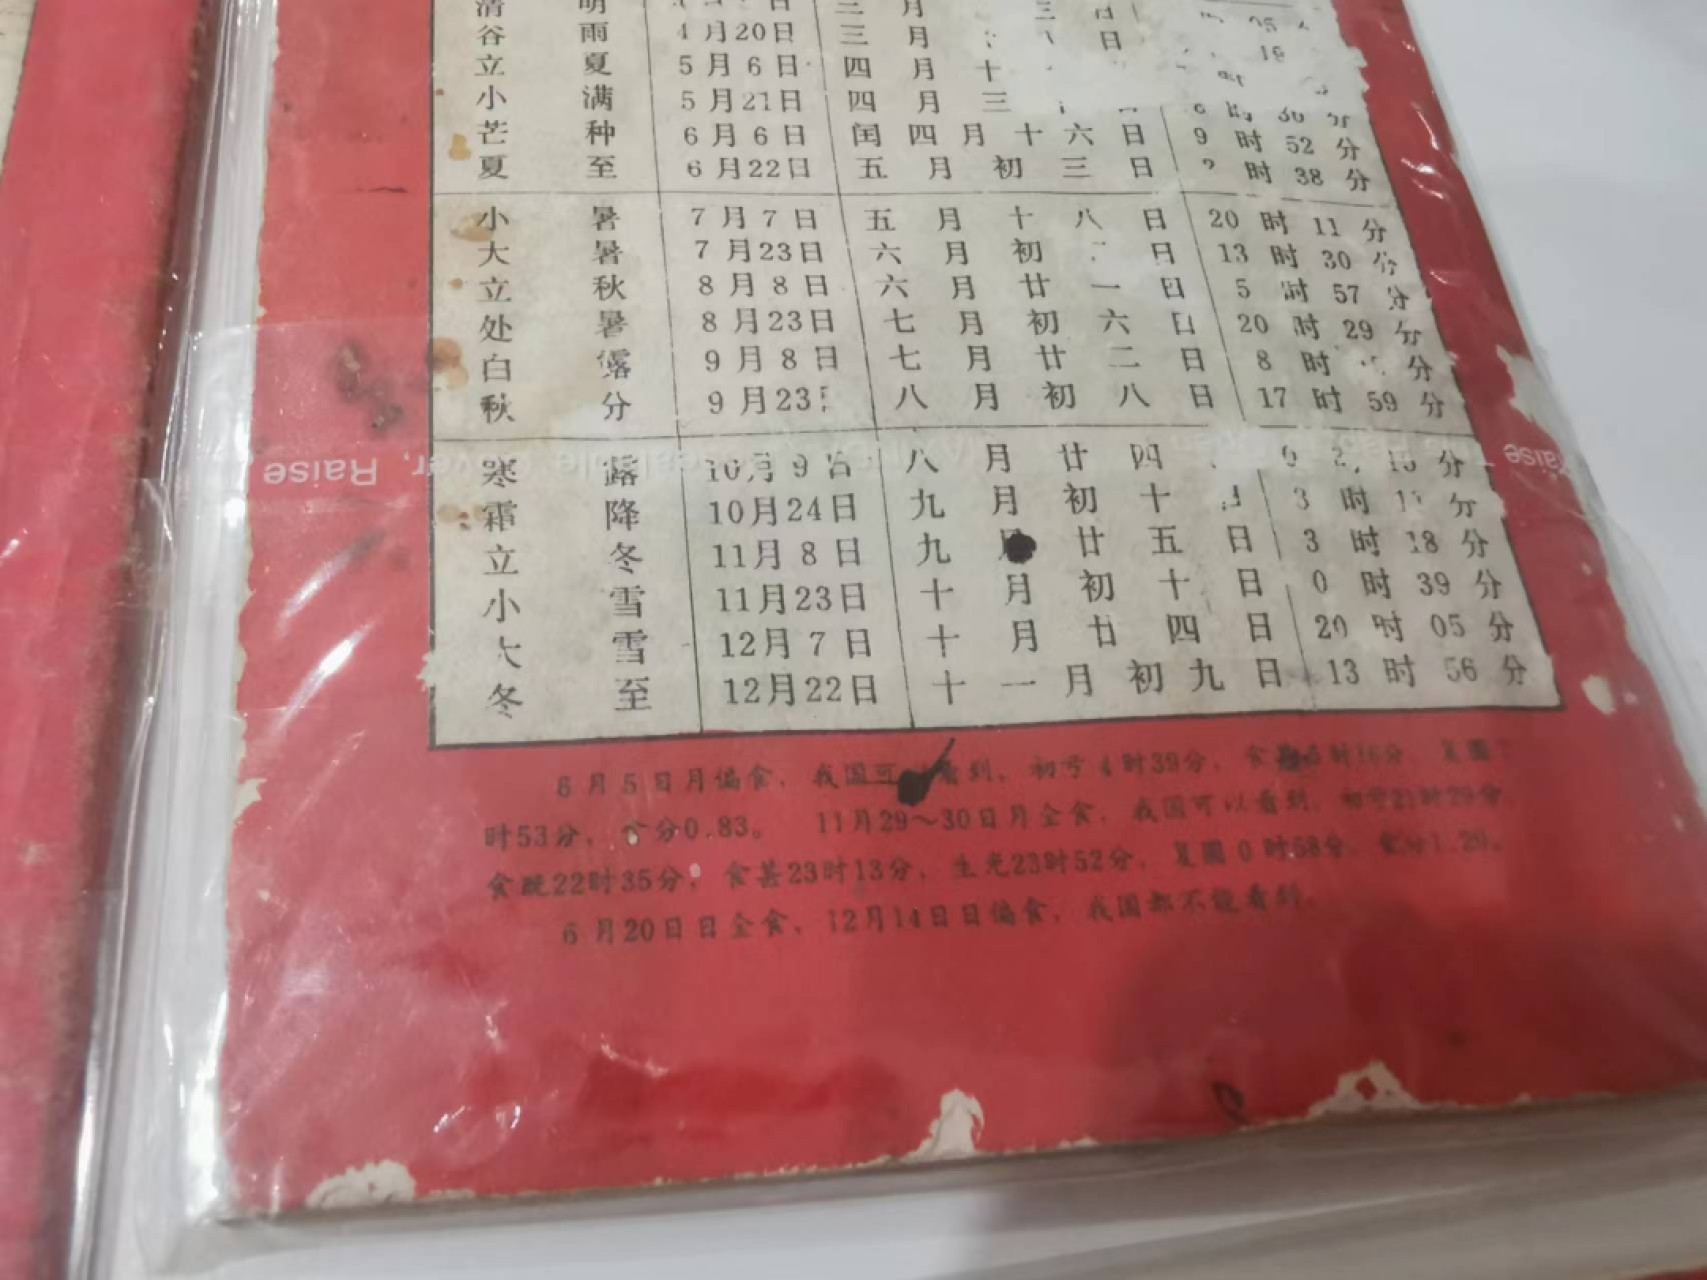 清 明
谷 雨 4月20日 三 月 日
立 夏 5月6日 四 月 十
小 满 5月21日 四 月 三
芒 种 6月6日 闰四月十六日 9时52分
夏 至 6月22日 五月初三日 时38分
小 暑 7月7日 五月十八日 20时11分
大 暑 7月23日 六月初 日 13时30分
立 秋 8月8日 六月廿一日 5时57分
处 暑 8月23日 七月初六日 20时29分
白 露 9月8日 七月廿二日 8时 分
秋 分 9月23日 八月初八日 17时59分
寒 露 10月9日 八月廿四 分
霜 降 10月24日 九月初十日 3时 分
立 冬 11月8日 九月廿五日 3时18分
小 雪 11月23日 十月初十日 0时39分
大 雪 12月7日 十月廿四日 20时05分
冬 至 12月22日 十一月初九日 13时56分
6月5日月偏食，我国可 看到，初亏4时39分，食 时16分，复圆
时53分，食分0.83。 11月29～30日月全食，我国可以看到，初亏21时29分
食既22时35分，食甚23时13分，生光23时52分，复圆0时58分，食分1.20。
6月20日日全食，12月14日日偏食，我国都不能看到。
Raise